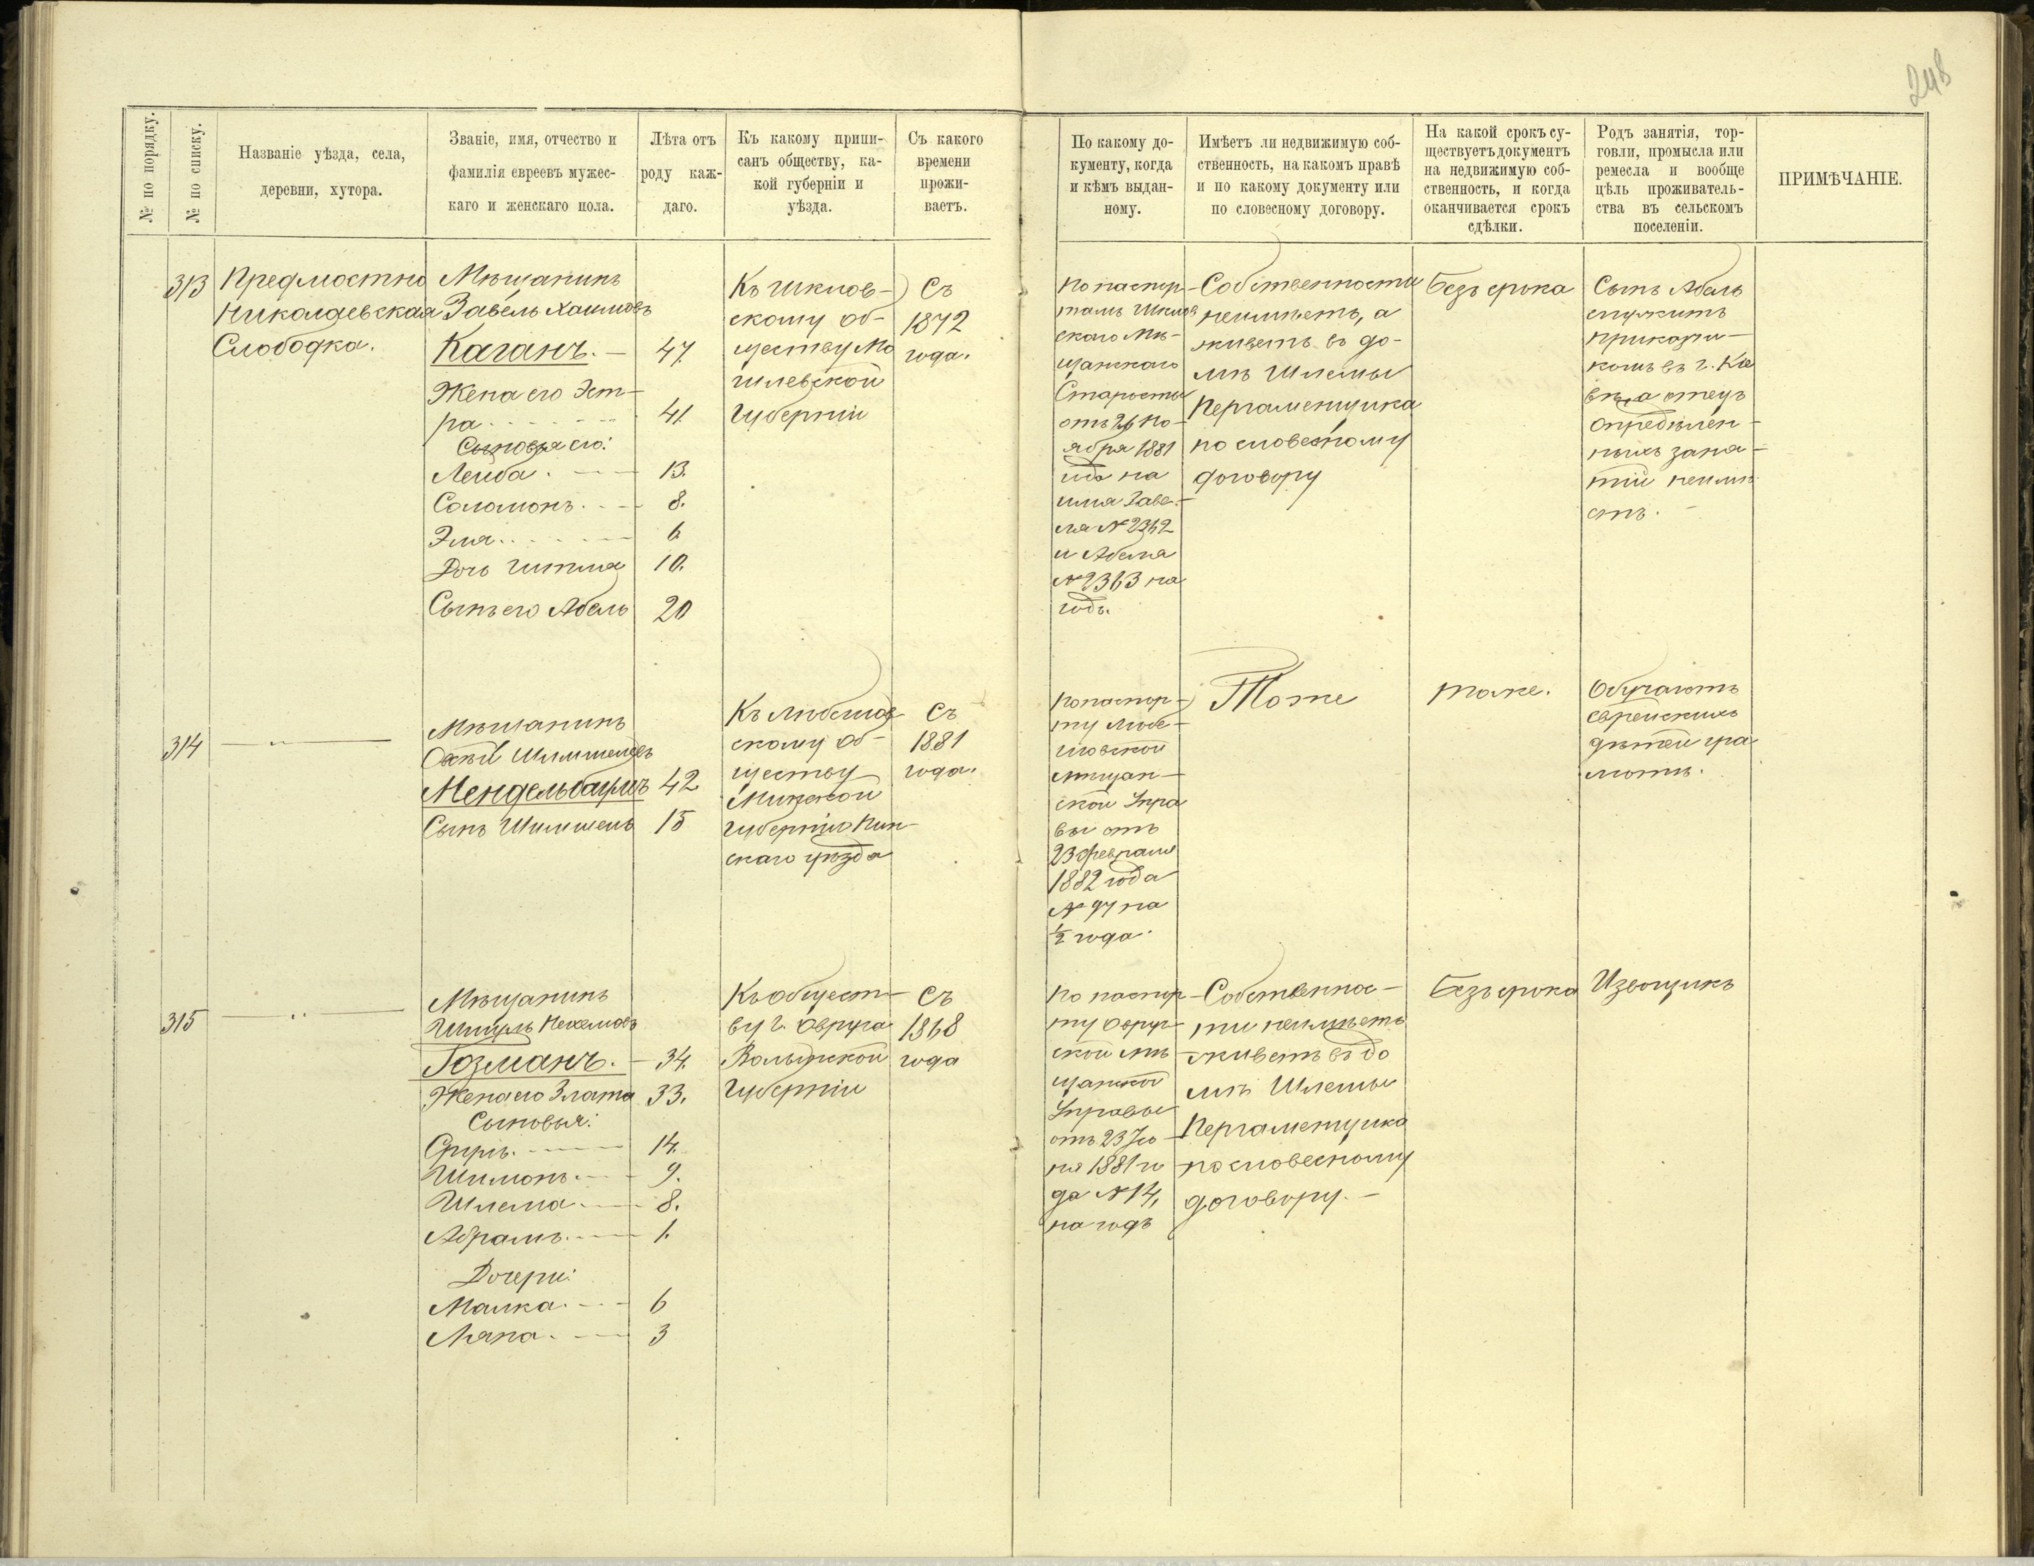 248
№ по порядку.
№ по списку.
Названіе уѣзда, села,
деревни, хутора.
Званіе, имя, отчество и
фамилія евреевъ мужес-
каго и женскаго пола.
Лѣта отъ
роду каж-
даго.
Къ какому припи-
санъ обществу, ка-
кой губерніи и
уѣзда.
Съ какого
времени
прожи-
ваетъ.
По какому до-
кументу, когда
и кѣмъ выдан-
ному.
Имѣетъ ли недвижимую соб-
ственность, на какомъ правѣ
и по какому документу или
по словесному договору.
На какой срокъ су-
ществуетъ документъ
на недвижимую соб-
ственность, и когда
оканчивается срокъ
сдѣлки.
Родъ занятія, тор-
говли, промысла или
ремесла и вообще
цѣль проживатель-
ства въ сельскомъ
поселеніи.
ПРИМѢЧАНІЕ.
313
Предмостно
Николаевская
Слободка.
Мѣщанинъ
Завель Хаимовъ
Каганъ. — 47
Жена его Эст-
ра 41
Сыновья его:
Лейба 13.
Соломонъ 8.
Эля 6
Дочь Гитля 10.
Сынъ его Абель 20
Къ Шклов-
скому об-
ществу Мо
гилевской
Губерніи
Съ
1872
года.
По паспор-
тамъ Шклов
скаго Мѣ-
щанскаго
Старосты
отъ 26 Но-
ября 1881
года на
имя Заве-
ля № 2362
и Абеля
№ 2363 на
годъ.
Собственности
неимѣетъ, а
живетъ въ до-
мѣ Шлемы
Пергаменщика
по словесному
договору
Безъ срока
Сынъ Абель
служитъ
прикащи-
комъ въ г. Кіе
вѣ, а отецъ
опредѣлен-
ныхъ заня-
тій неимѣ
етъ.
314
— " —
Мѣщанинъ
Шлимшелевъ
Мендельбаумъ 42
Сынъ Шлимшель 15
Къ Любешов
скому об-
ществу
Минской
Губерніи Пин
скаго уѣзда
Съ
1881
года.
По паспор-
ту Любе-
шовской
мѣщан-
ской Упра
вы отъ
23 февраля
1882 года
№ 97 на
½ года.
Тоже
тоже.
Обучаютъ
еврейскихъ
дѣтей гра
мотѣ.
315
— " —
Мѣщанинъ
Шмуль Нехемовъ
Гозманъ. — 34.
Жена его Злата 33.
Сыновья:
Сруль 14.
Шимонъ 9.
Шлема 8.
Абрамъ 1.
Дочери:
Малка 6
Ляна 3
Къ общест-
ву г. Овруча
Волынской
Губерніи
Съ
1868
года
По паспор-
ту Овруч-
ской мѣ
щанской
Управы
отъ 23 Ію-
ня 1881 го
да № 14,
на годъ
Собственнос-
ти неимѣетъ
живетъ въ до
мѣ Шлемы
Пергаменщика
по словесному
договору. —
Безъ срока
Извощикъ